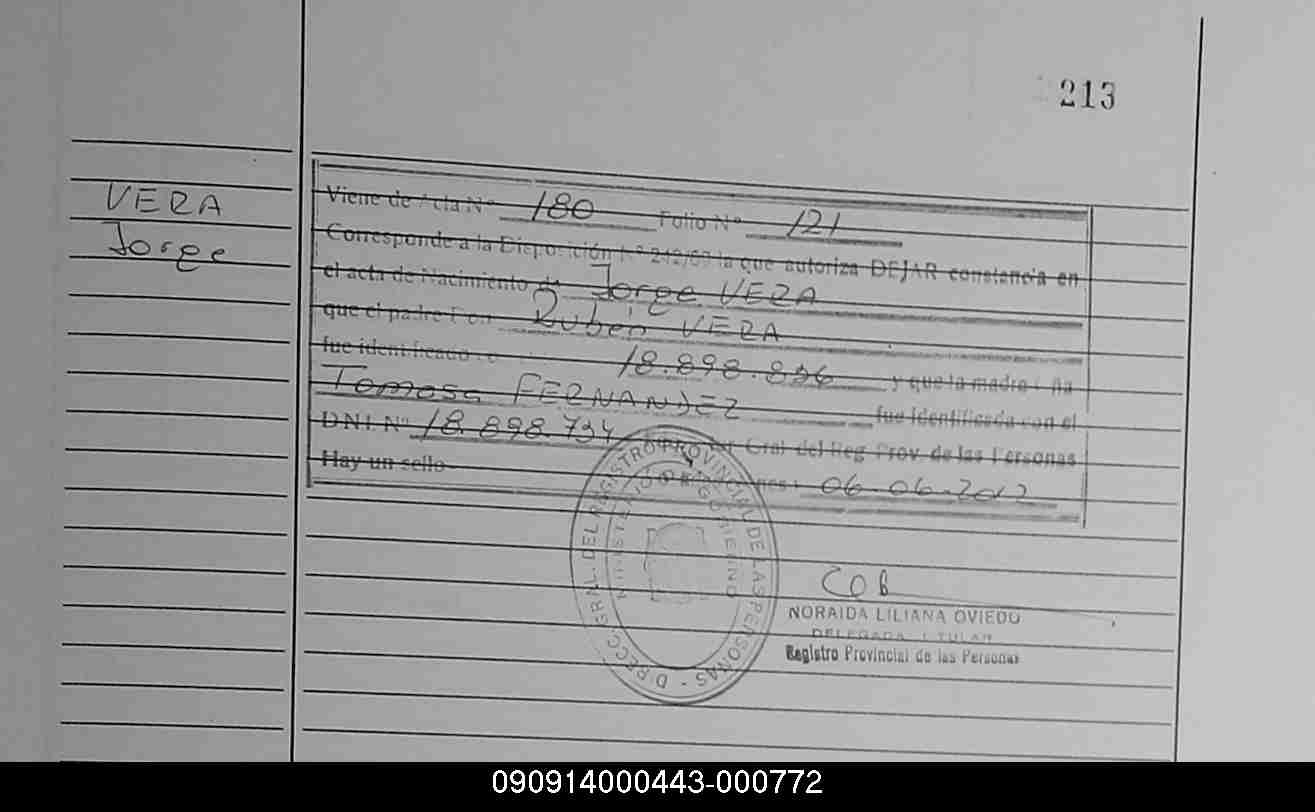 213
VERA
Jorge
Viene de Acta Nº 180 Folio Nº 121
Corresponde a la Disposición Nº 242/69 la que autoriza DEJAR constancia en
el acta de Nacimiento de Jorge VERA
que el padre Don Rubén VERA
fue identificado 18.898.836 y que la madre Dña
Tomasa FERNANDEZ fue identificada con el
DNI. Nº 18.898.734 Gral del Reg Prov. de las Personas
Hay un sello 06-06-2012
DIRECC. GRAL. DEL REGISTRO PROVINCIAL DE LAS PERSONAS
MINISTERIO DE GOBIERNO
NORAIDA LILIANA OVIEDO
DELEGADA TITULAR
Registro Provincial de las Personas
090914000443-000772